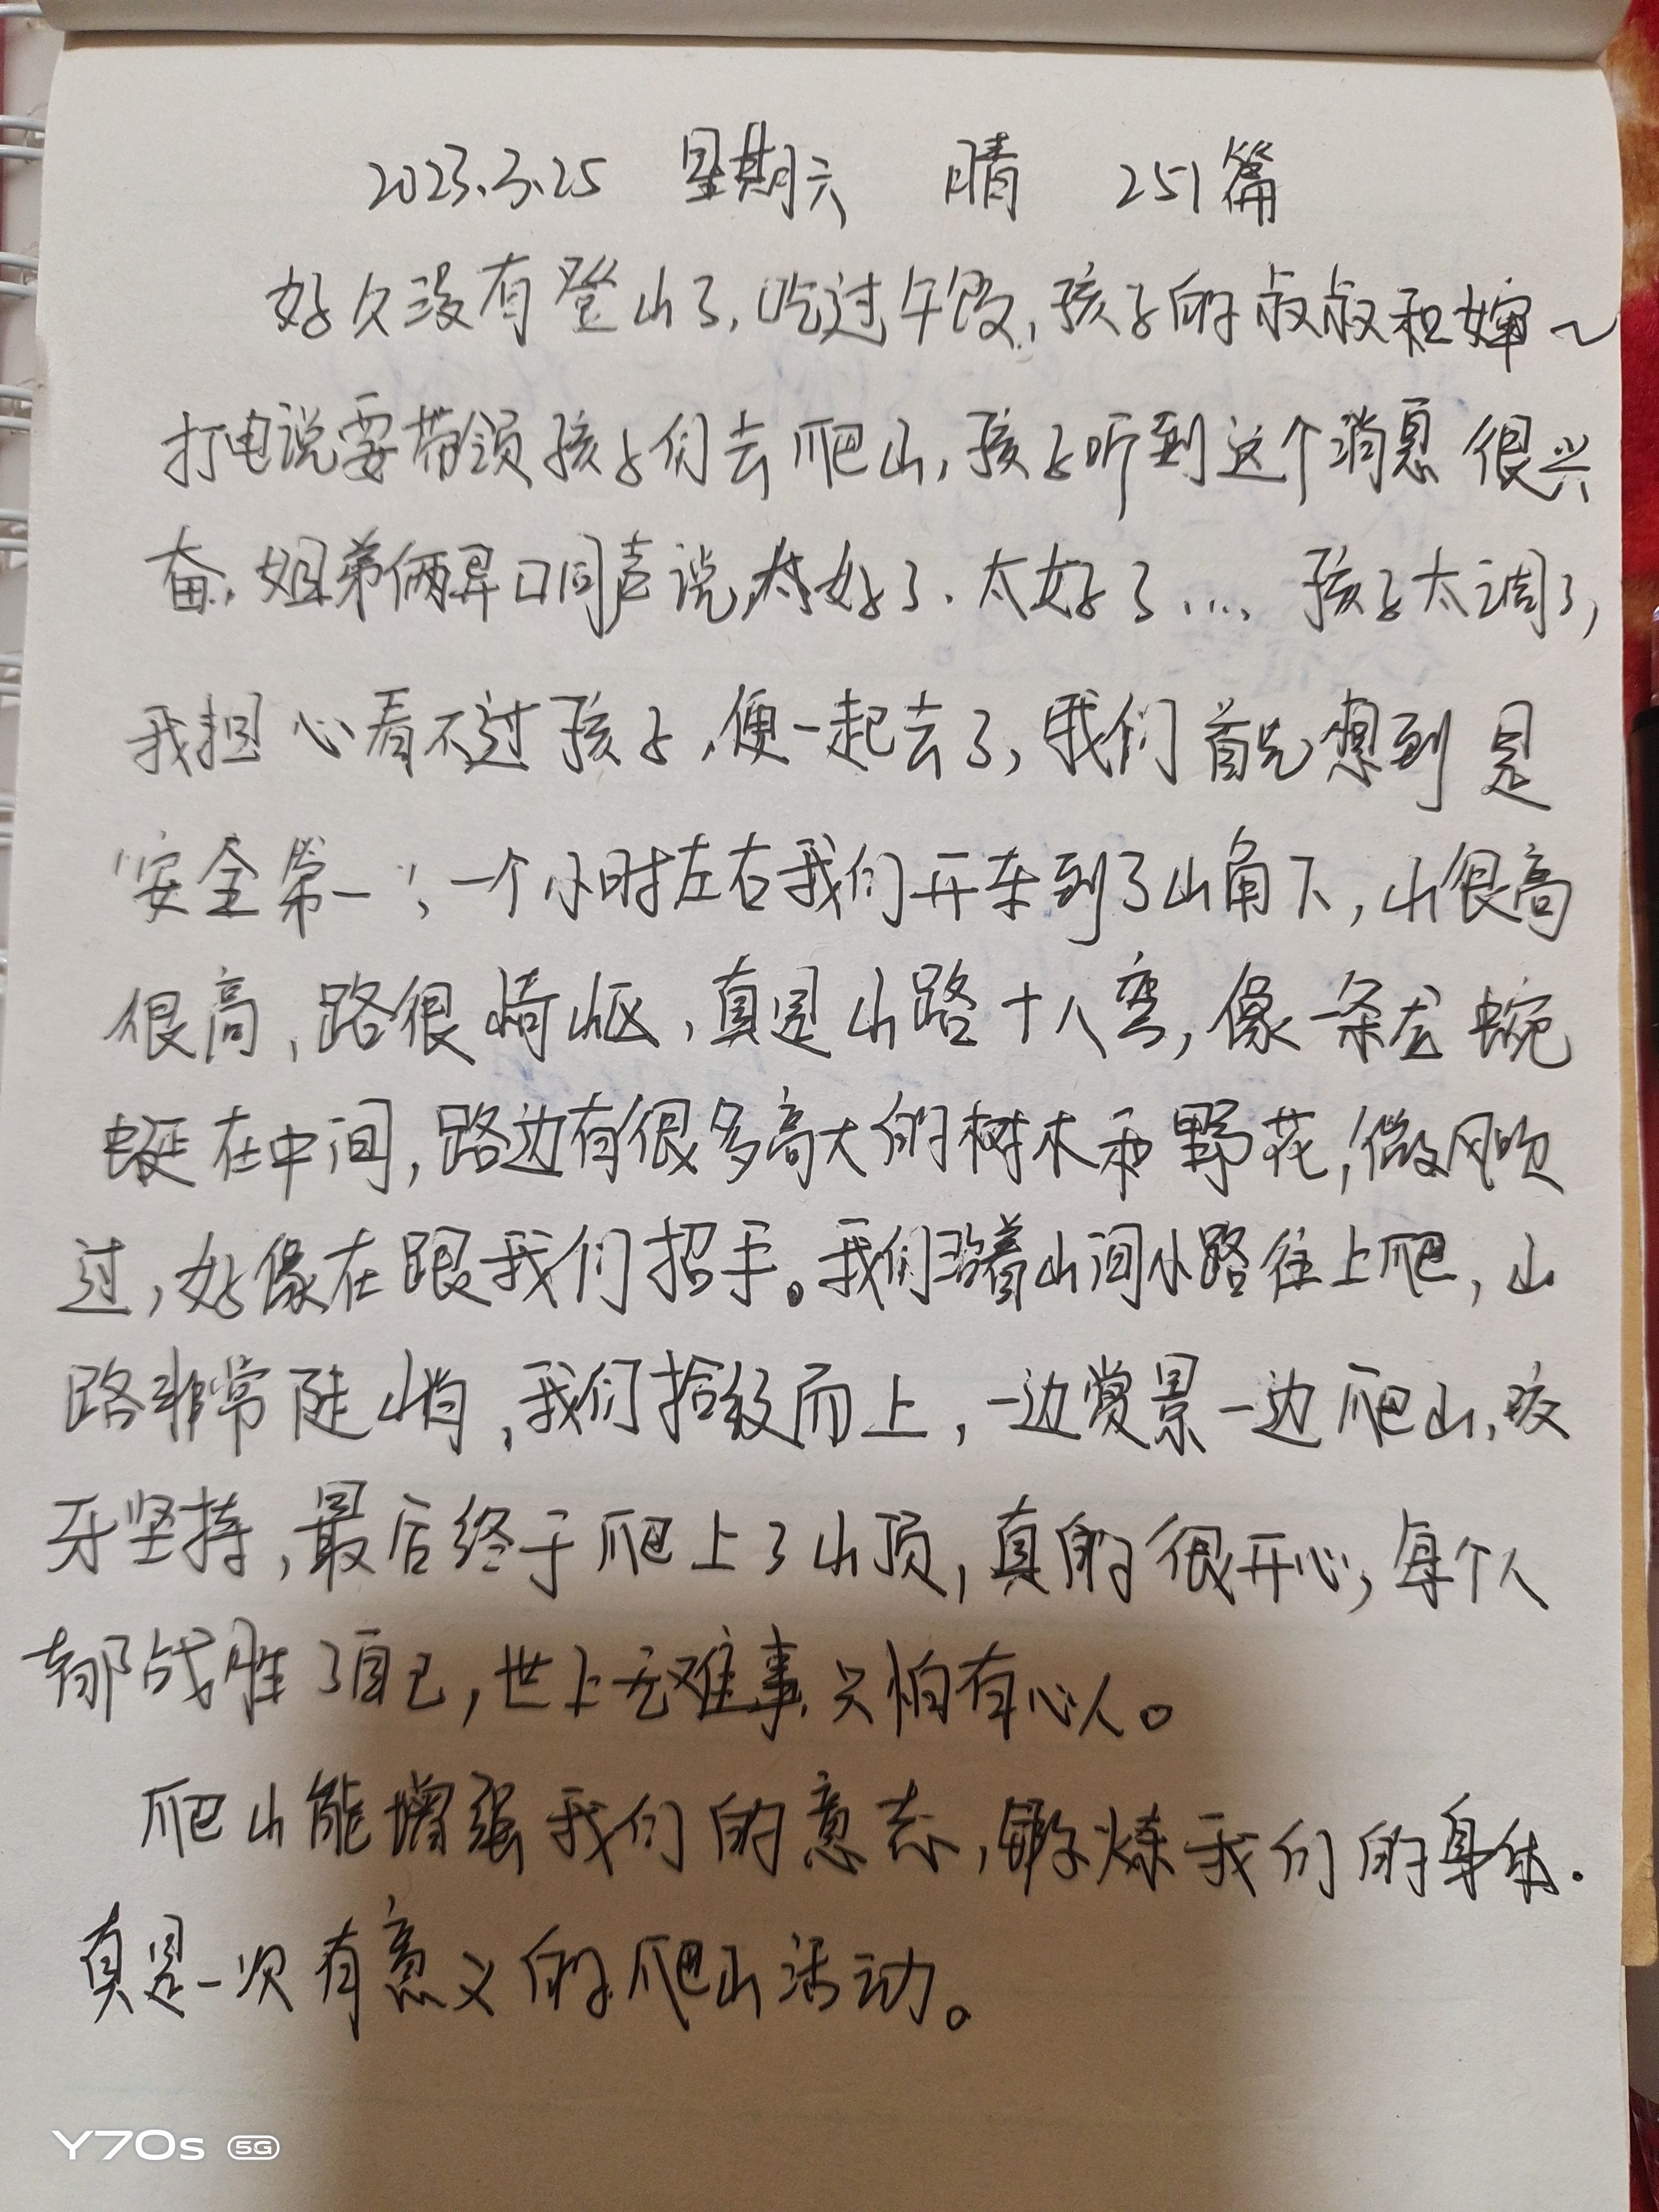 2023.3.25 星期六 晴 251篇
好久没有登山了,吃过午饭,孩子的叔叔和婶~
打电说要带领孩子们去爬山,孩子听到这个消息很兴
奋,姐弟俩异口同声说,太好了.太好了.... 孩子太调了,
我担心看不过孩子,便一起去了,我们首先想到是
“安全第一”,一个小时左右我们开车到了山角下,山很高
很高,路很崎岖,真是山路十八弯,像一条龙蜿
蜒在中间,路边有很多高大的树木和野花,微风吹
过,好像在跟我们招手。我们沿着山间小路往上爬,山
路非常陡峭,我们拾级而上,一边赏景一边爬山,咬
牙坚持,最后终于爬上了山顶,真的很开心,每个人
都战胜了自己,世上无难事只怕有心人。
爬山能增强我们的意志,锻炼我们的身体.
真是一次有意义的爬山活动。
Y70s 5G